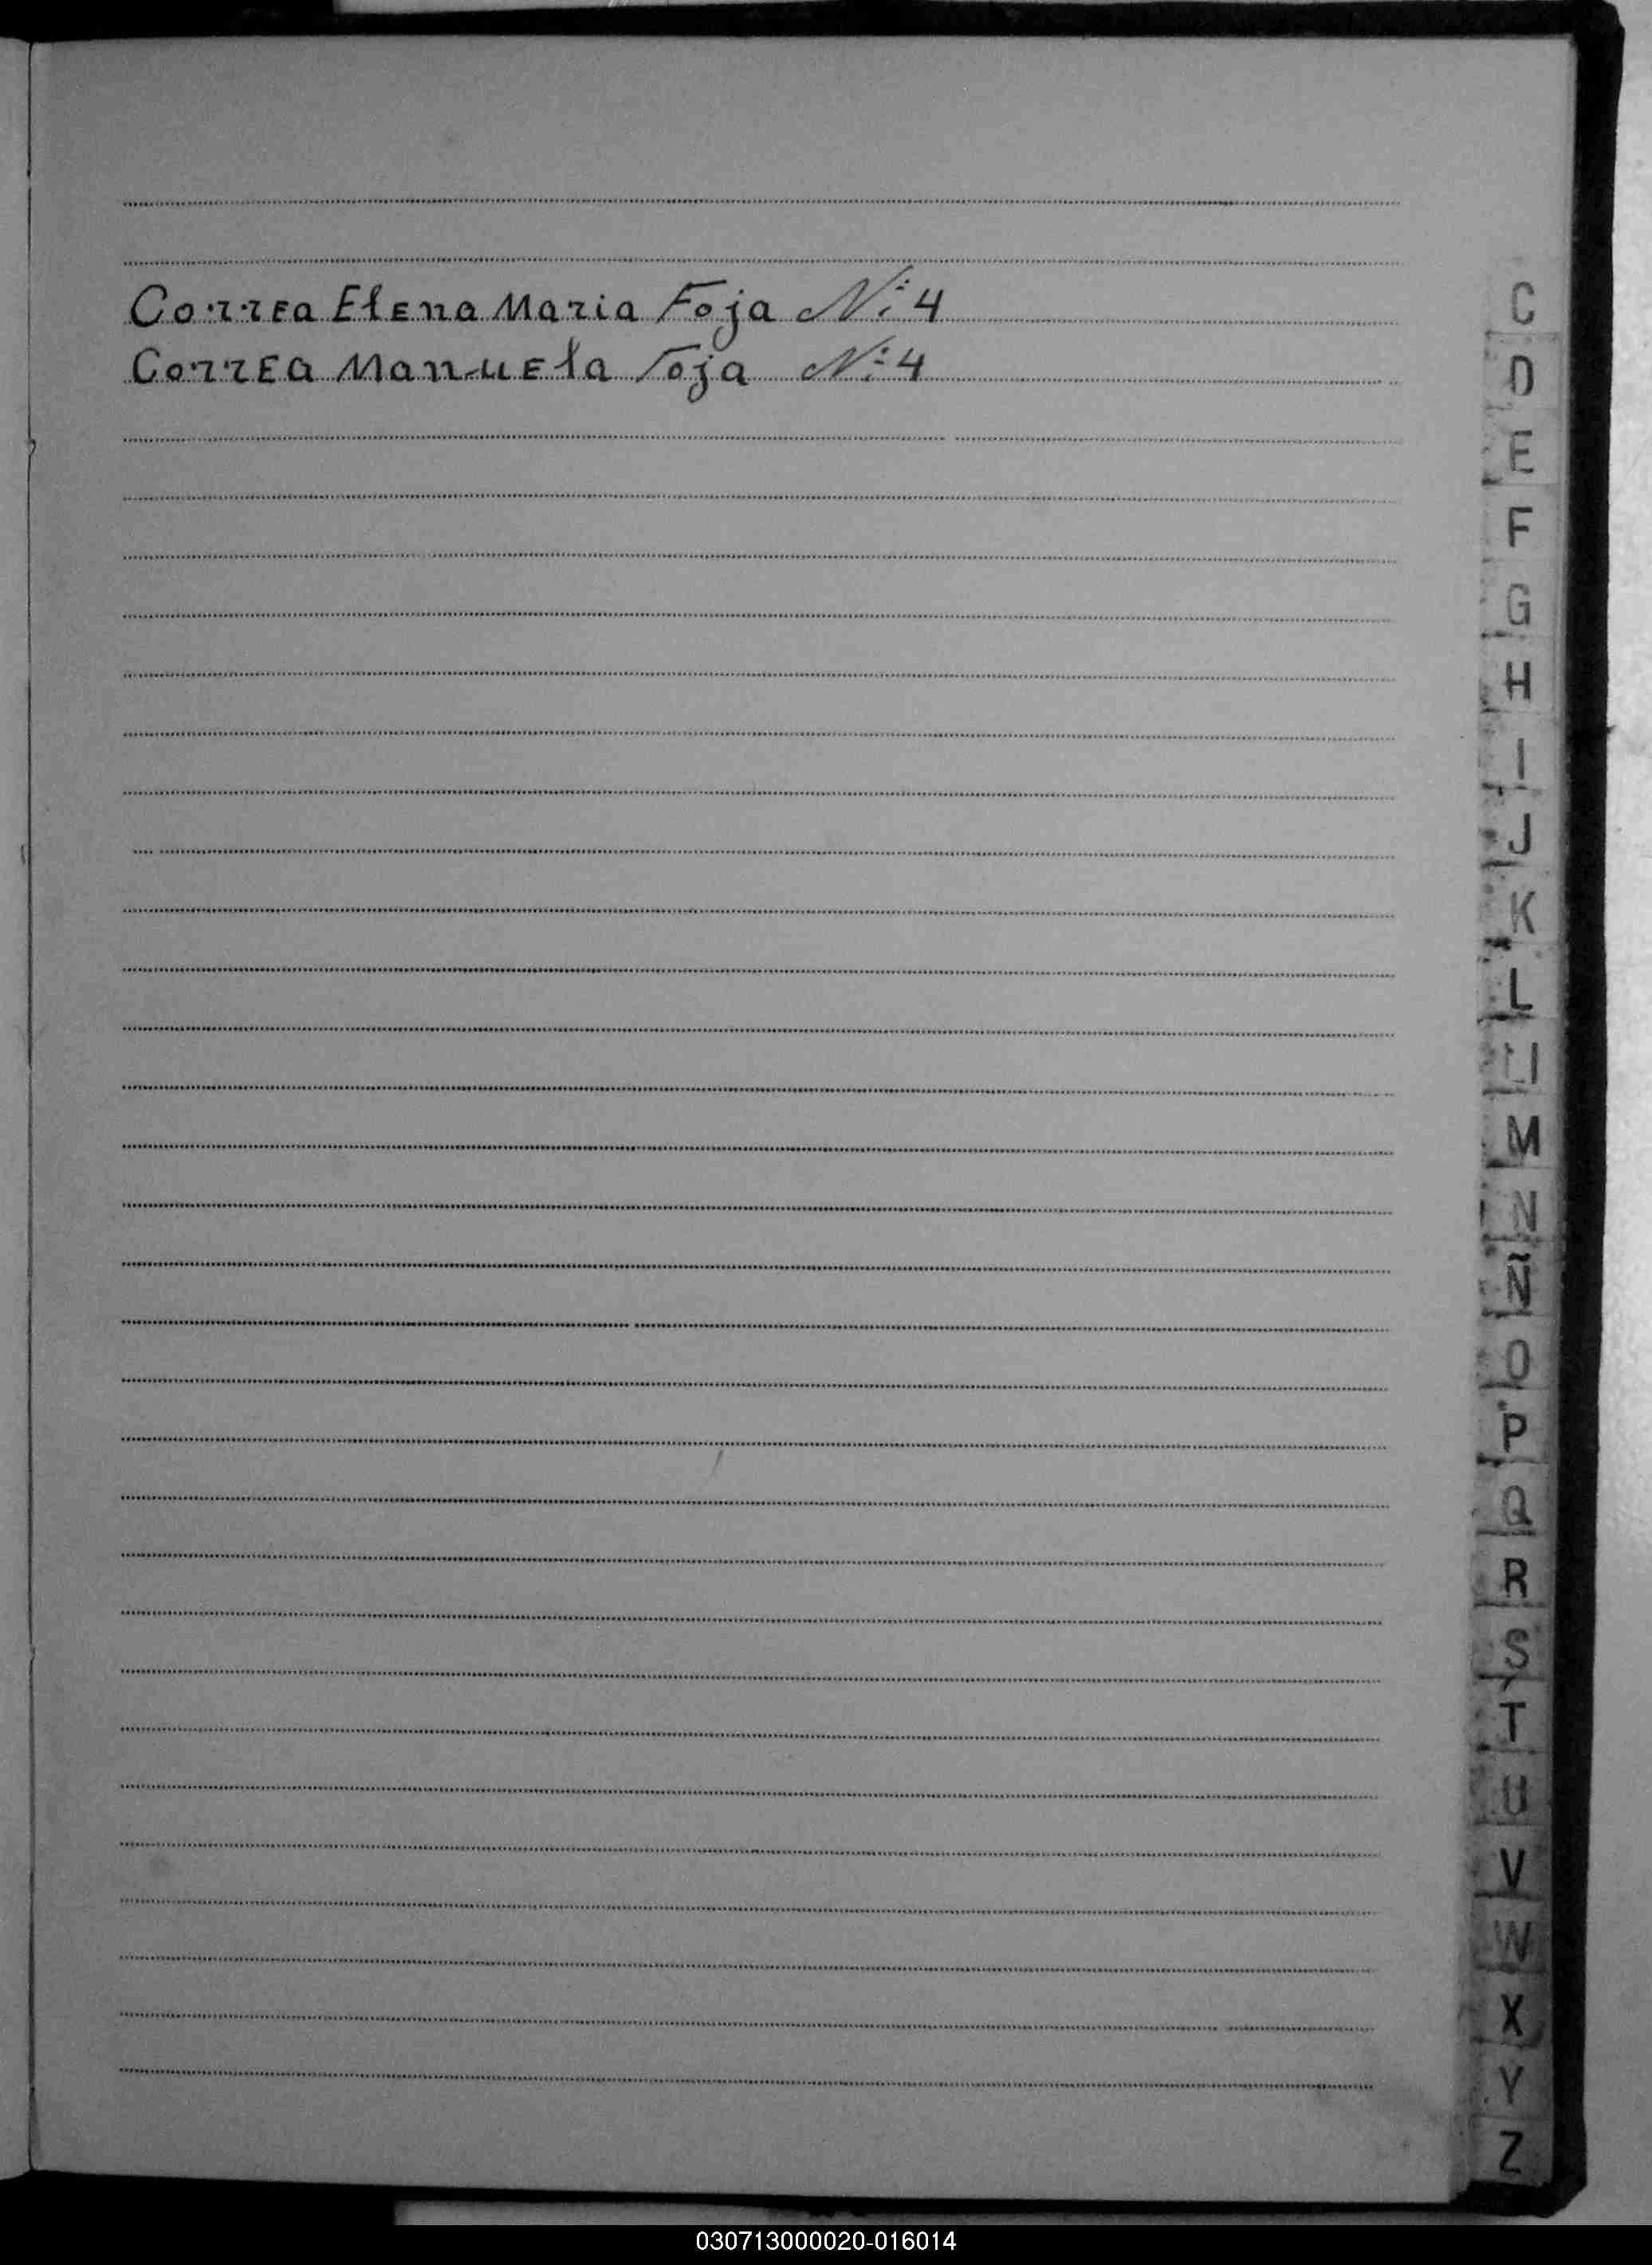 Correa Elena Maria Foja Nº 4
Correa Manuela Foja Nº 4
C
D
E
F
G
H
I
J
K
L
M
N
Ñ
O
P
Q
R
S
T
U
V
W
X
Y
Z
030713000020-016014